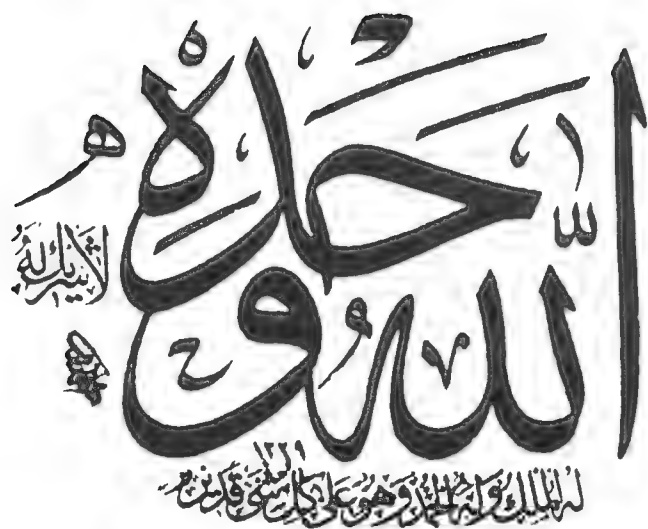 الله وحده
لا شريك له
له الملك وله الحمد وهو على كل شئ قدير